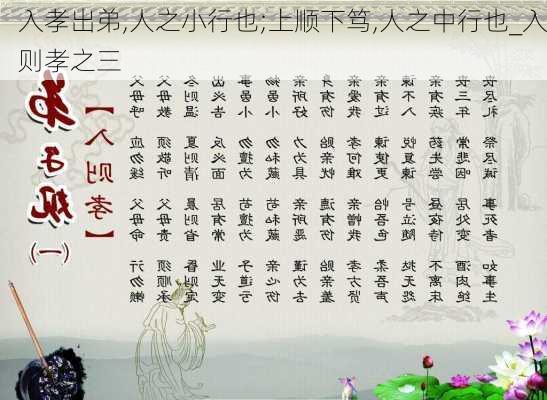 入孝出弟,人之小行也;上顺下笃,人之中行也_入
则孝之三
弟子规(一)
【入则孝】
父母呼 应勿缓 父母命 行勿懒
父母教 须敬听 父母责 须顺承
冬则温 夏则清 晨则省 昏则定
出必告 反必面 居有常 业无变
事虽小 勿擅为 苟擅为 子道亏
物虽小 勿私藏 苟私藏 亲心伤
亲所好 力为具 亲所恶 谨为去
身有伤 贻亲忧 德有伤 贻亲羞
亲爱我 孝何难 亲憎我 孝方贤
亲有过 谏使更 怡吾色 柔吾声
谏不入 悦复谏 号泣随 挞无怨
亲有疾 药先尝 昼夜侍 不离床
丧三年 常悲咽 居处变 酒肉绝
丧尽礼 祭尽诚 事死者 如事生